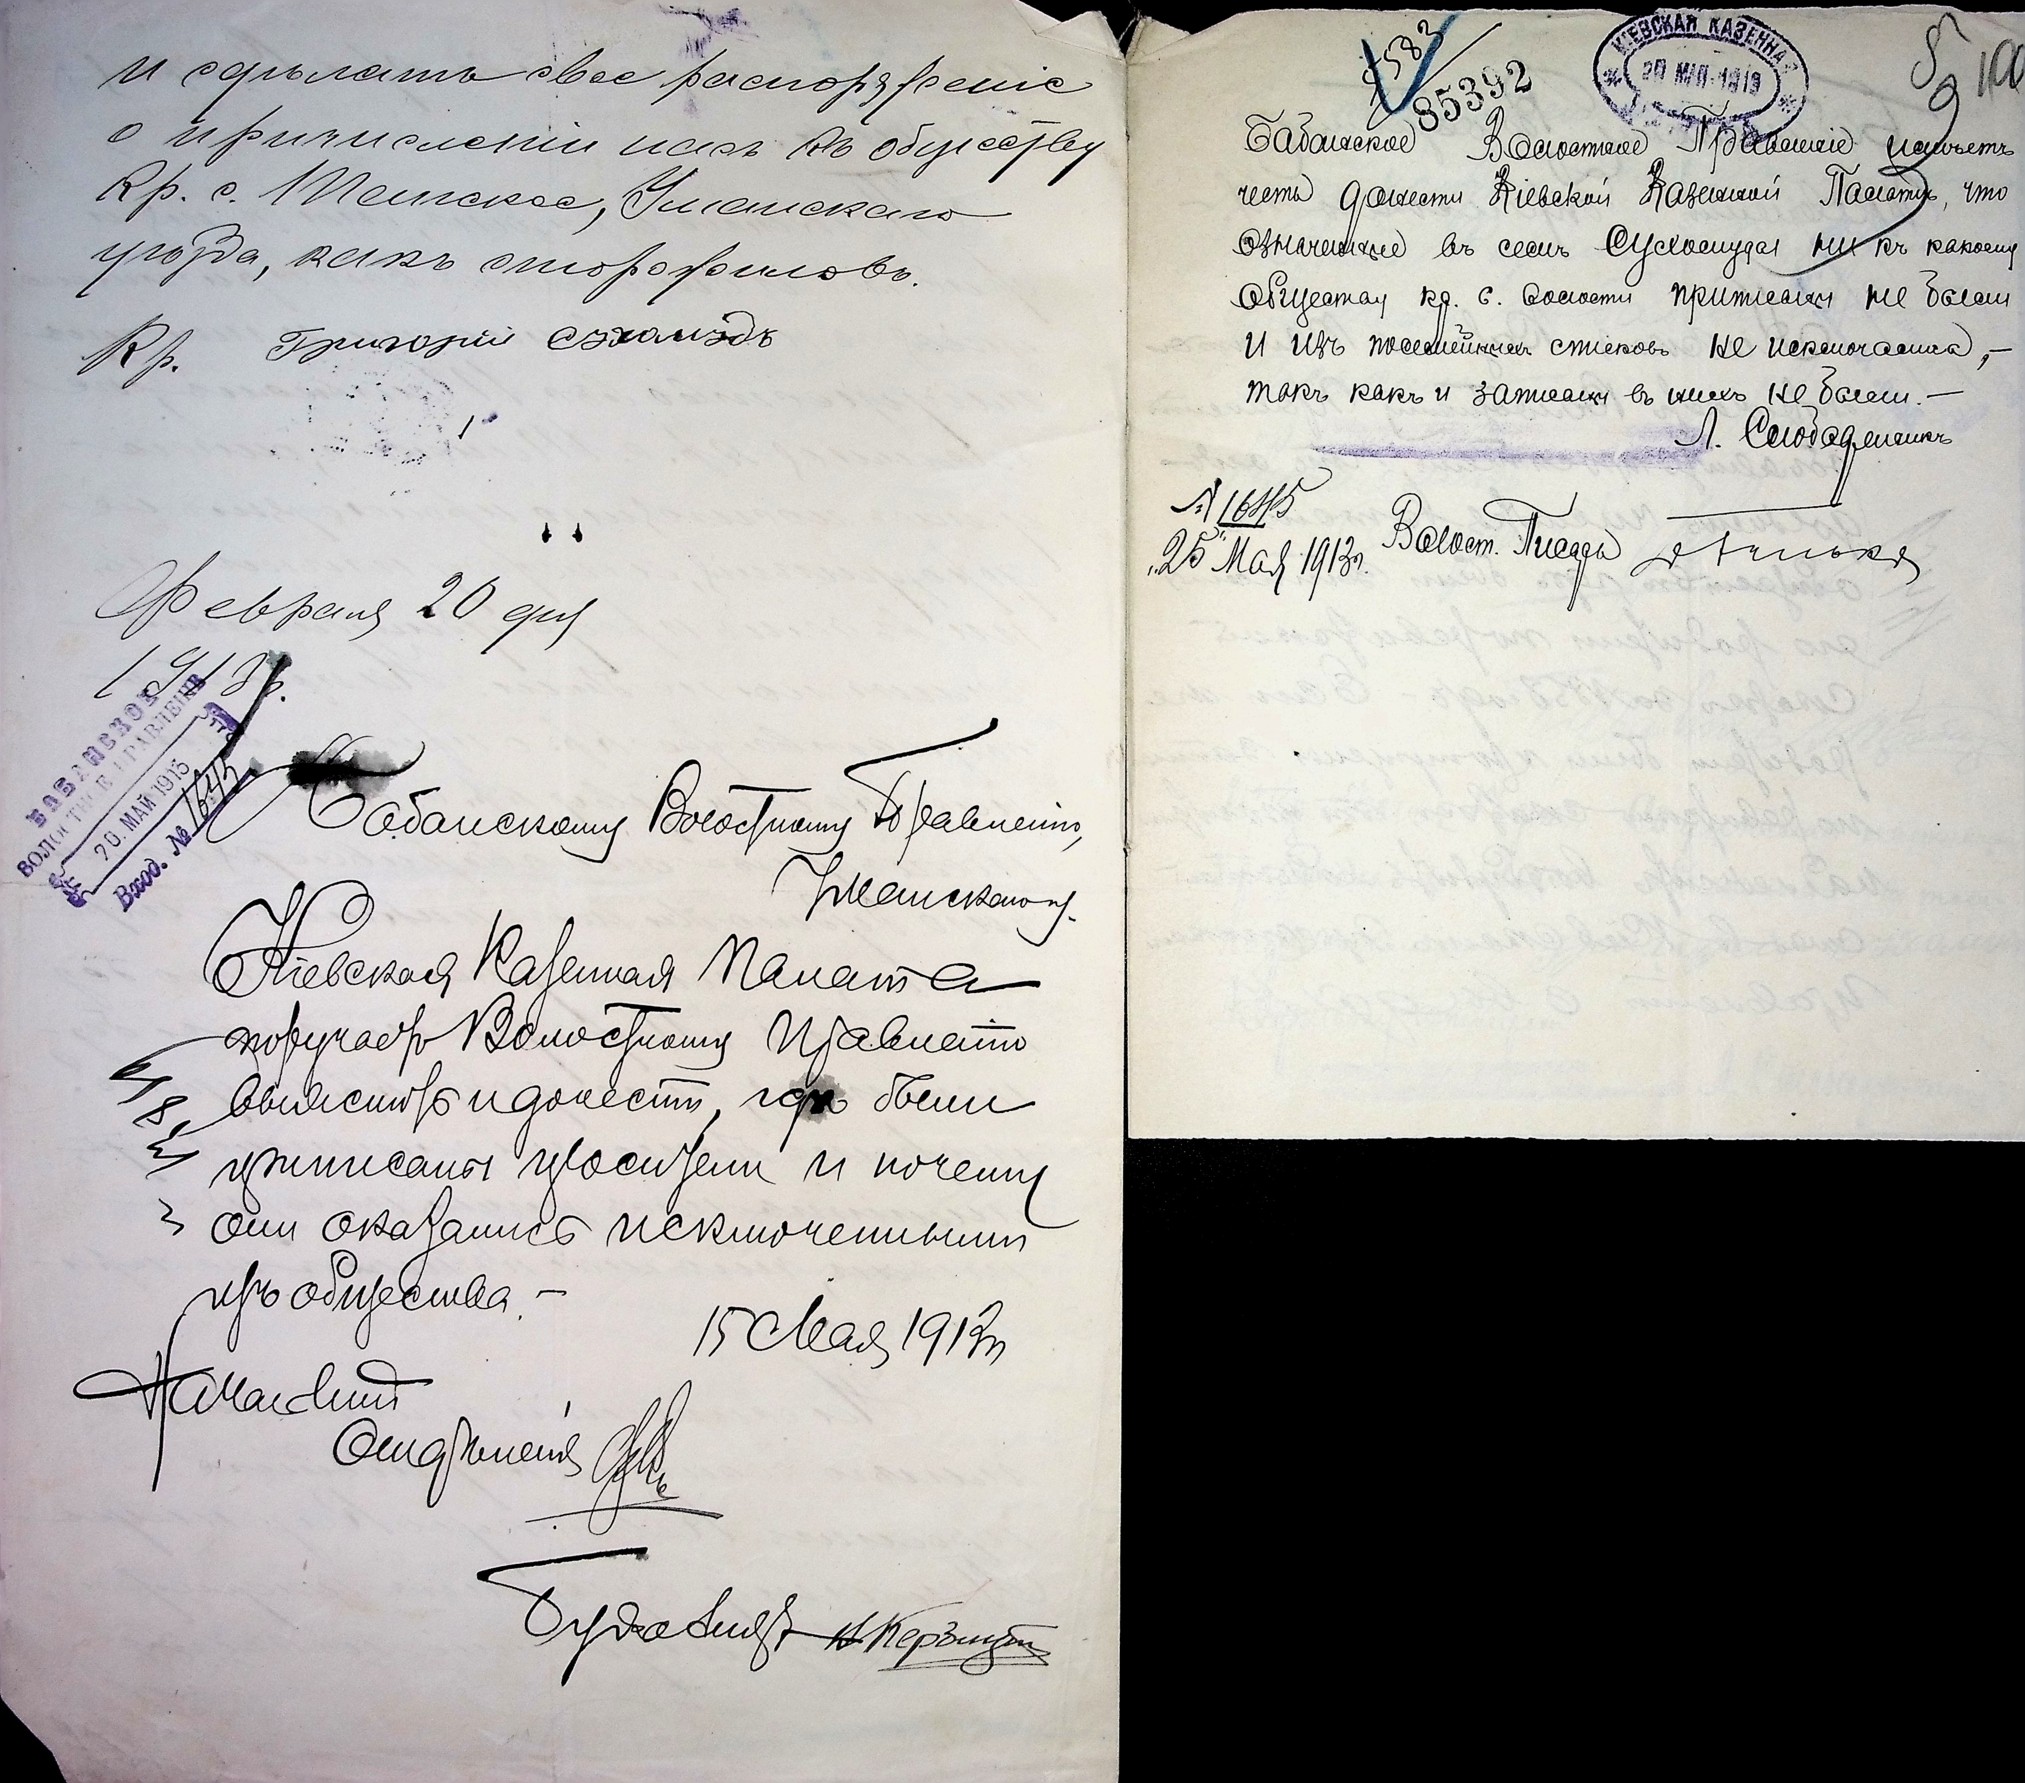 и сдѣлать свое распоряженіе
о причисленіи насъ къ обществу
Кр. с. Уманскаго
уѣзда, какъ сторожиловъ.
Кр. Григорій Сухомудъ
Февраля 20 дня
1913 г.
БАБАНСКОЕ
ВОЛОСТНОЕ ПРАВЛЕНІЕ
20. МАЙ 1913
Вход. № 1645
Бабанскому Волостному Правленію,
Уманскаго у.
Кіевская Казенная Палата
поручаетъ Волостному Правленію
выяснить и донести, гдѣ были
приписаны просители и почему
они оказались исключенными
изъ общества. —
15 Мая 1913 г.
Начальникъ
Отдѣленія
35392
КІЕВСКАЯ КАЗЕННАЯ
Бабанское Волостное Правленіе имѣетъ
честь донести Кіевской Казенной Палатѣ, что
означенные въ семъ Сухомуды ни къ какому
обществу кр. с. волости приписаны не были
и изъ посемейныхъ списковъ не исключались, —
такъ какъ и записаны въ нихъ не были. —
№ 1645
"25" Мая 1913 г. Волост.